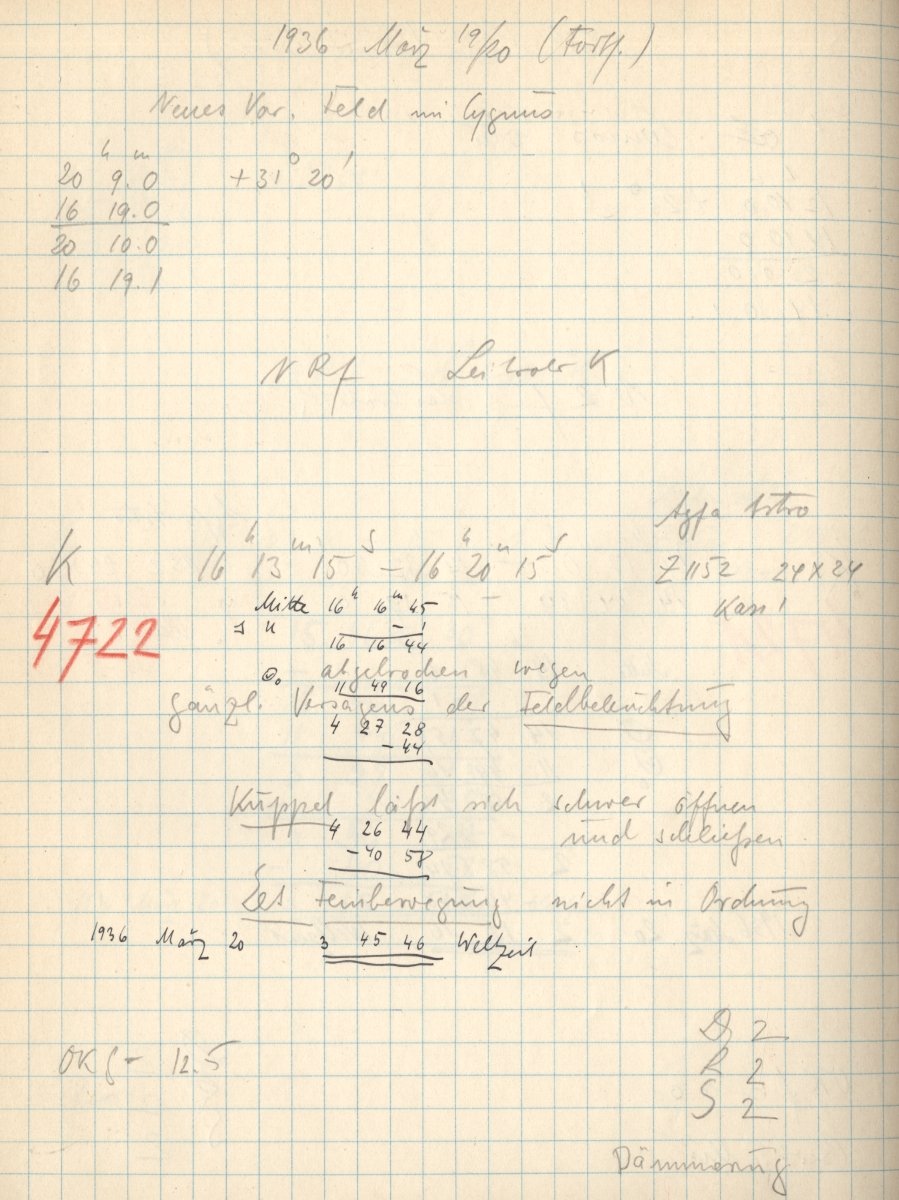 1936 März 19/20 (Forts.)
Neues Var. Feld im Cygnus
20ʰ 9.ᵐ0 +31° 20'
16 19.0
20 10.0
16 19.1
N Rf Leitrohr K
Agfa Astro
K 16ʰ 13ᵐ 15ˢ – 16ʰ 20ᵐ 15ˢ Z 1152 24x24
Mitte 16ʰ 16ᵐ 45 Kass 1
4722
– 1
16 16 44
abgebrochen wegen
11 49 16
gänzl. Versagens der Feldbeleuchtung
4 27 28
– 44
Kuppel läßt sich schwer öffnen
4 26 44 und schließen
– 40 58
Feinbewegung nicht in Ordnung
1936 März 20 3 45 46 Weltzeit
D 2
OKf – 12.5 R 2
S 2
Dämmerung